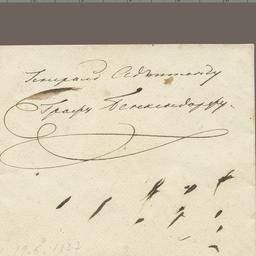 Генералъ Адъютанту
Графу Бенкендорфу.
19.6.1837